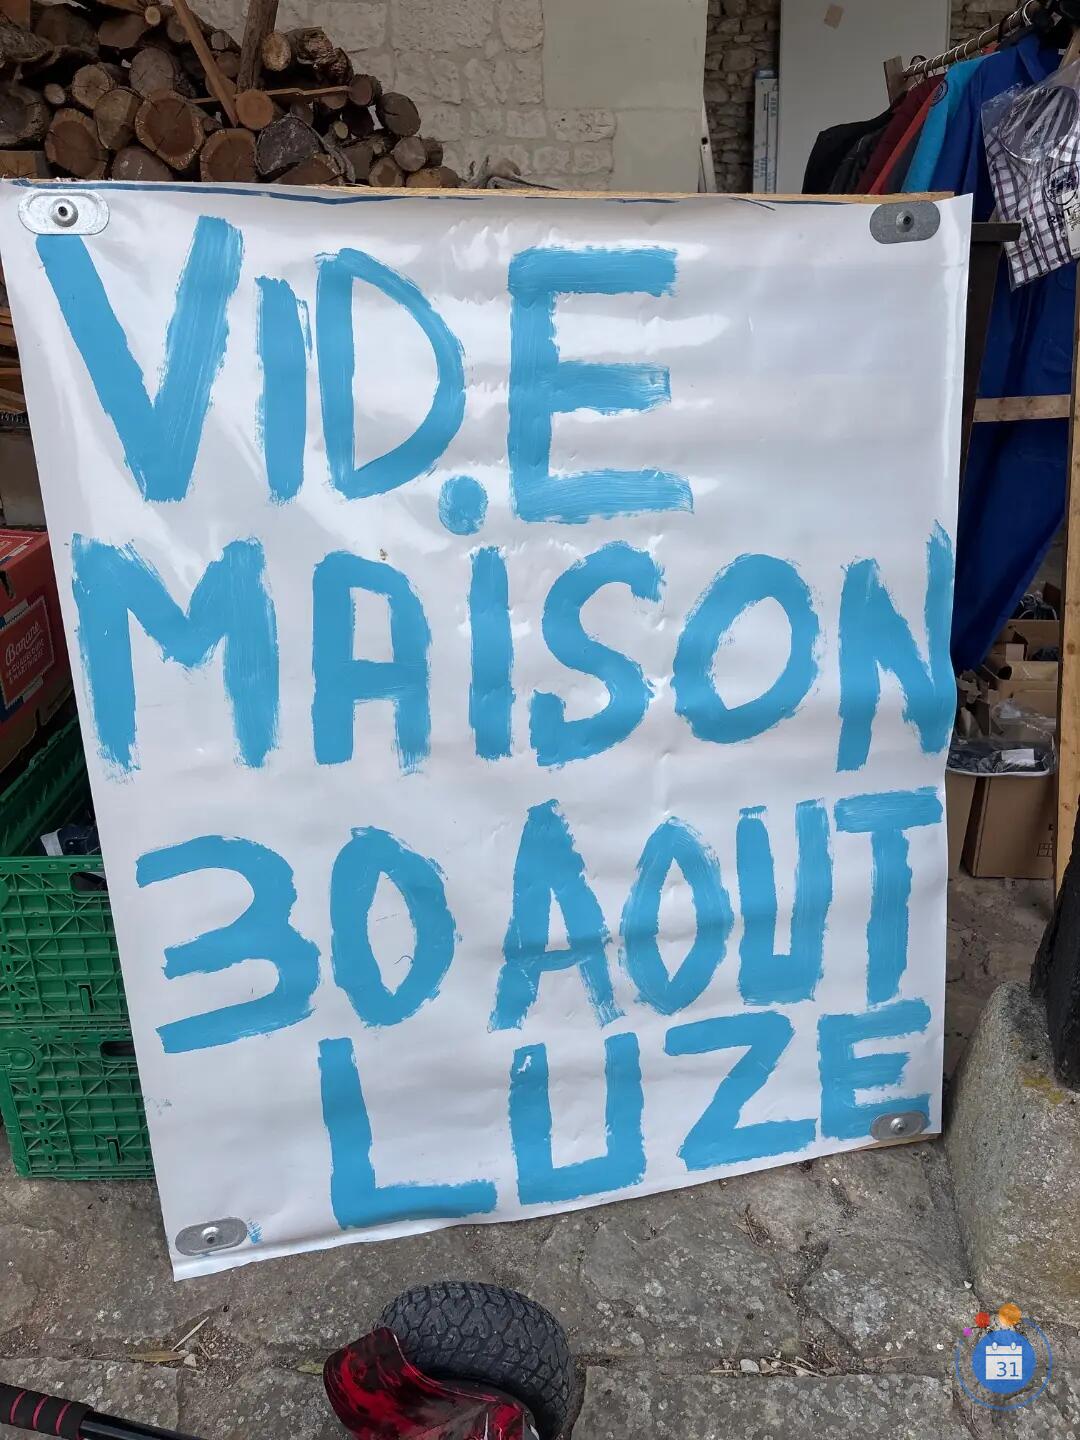 VID.E
MAISON
30 AOUT
LUZE
Banane
31